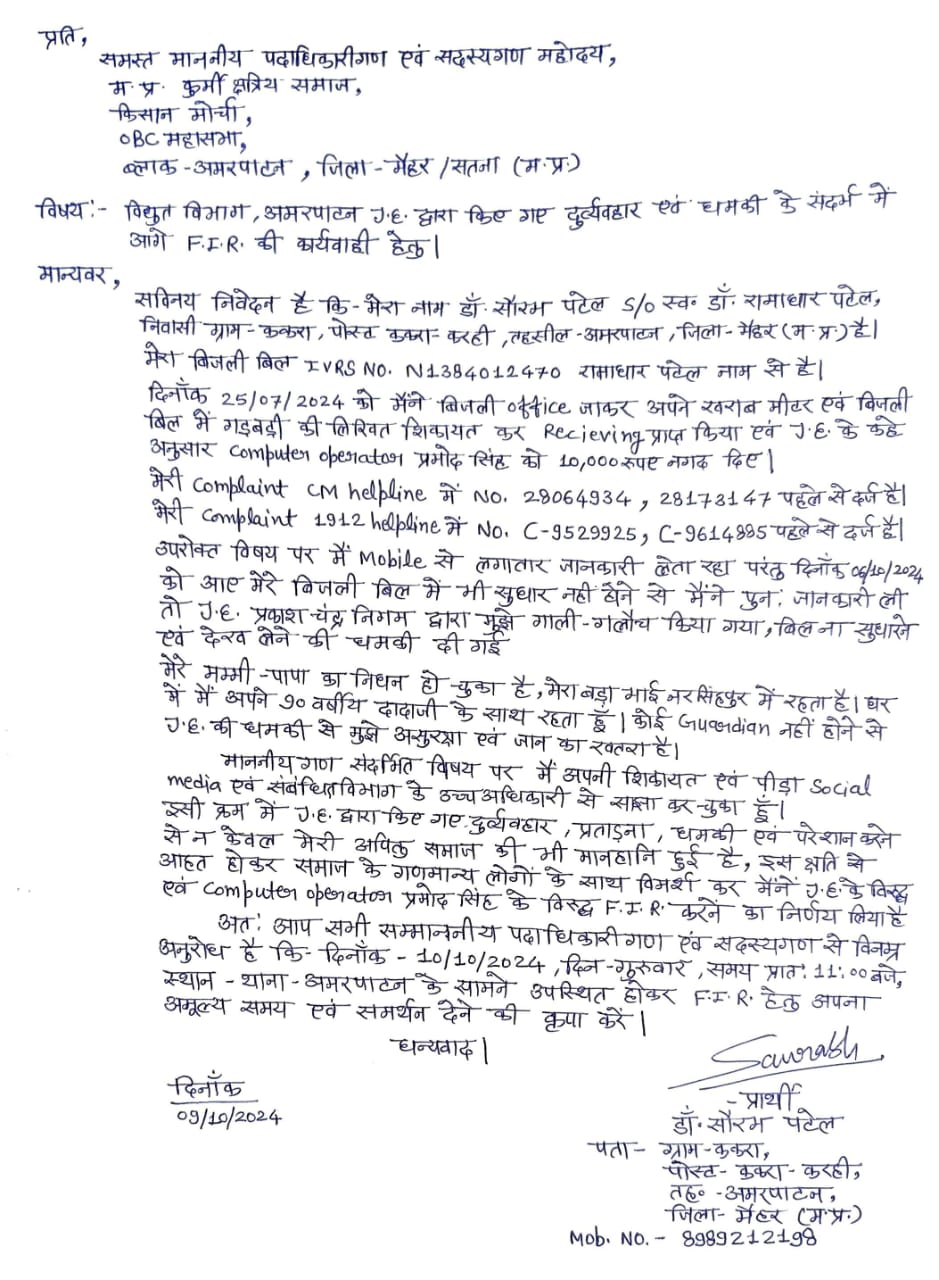 प्रति,
समस्त माननीय पदाधिकारीगण एवं सदस्यगण महोदय,
म.प्र. कुर्मी क्षत्रिय समाज,
किसान मोर्चा,
OBC महासभा,
ब्लाक-अमरपाटन, जिला-मैहर/सतना (म.प्र.)
विषय:- विद्युत विभाग, अमरपाटन J.E. द्वारा किए गए दुर्व्यवहार एवं धमकी के संदर्भ में
आगे F.I.R. की कार्यवाही हेतु।
मान्यवर,
सविनय निवेदन है कि-मेरा नाम डॉ. सौरभ पटेल S/o स्व॰ डॉ. रामाधार पटेल,
निवासी ग्राम-ककरा, पोस्ट ककरा-करही, तहसील-अमरपाटन, जिला-मैहर (म.प्र.) है।
मेरा बिजली बिल IVRS NO. N1384012470 रामाधार पटेल नाम से है।
दिनाँक 25/07/2024 को मैंने बिजली office जाकर अपने खराब मीटर एवं बिजली
बिल में गड़बड़ी की लिखित शिकायत कर Recieving प्राप्त किया एवं J.E. के कहे
अनुसार Computer operator प्रमोद सिंह को 10,000 रूपए नगद दिए।
मेरी Complaint CM helpline में NO. 28064934, 28173147 पहले से दर्ज है।
मेरी Complaint 1912 helpline में No. C-9529925, C-9614885 पहले से दर्ज है।
उपरोक्त विषय पर मैं Mobile से लगातार जानकारी लेता रहा परंतु दिनाँक 06/10/2024
को आए मेरे बिजली बिल में भी सुधार नहीं होने से मैंने पुन: जानकारी ली
तो J.E. प्रकाश चंद्र निगम द्वारा मुझे गाली-गलौच किया गया, बिल ना सुधारने
एवं देख लेने की धमकी दी गई
मेरे मम्मी-पापा का निधन हो चुका है, मेरा बड़ा भाई नरसिंहपुर में रहता है। घर
में मैं अपने 90 वर्षीय दादाजी के साथ रहता हूँ। कोई Guardian नहीं होने से
J.E. की धमकी से मुझे असुरक्षा एवं जान का खतरा है।
माननीयगण संदर्भित विषय पर मैं अपनी शिकायत एवं पीड़ा Social
media एवं संबंधित विभाग के उच्च अधिकारी से साझा कर चुका हूँ।
इसी क्रम में J.E. द्वारा किए गए दुर्व्यवहार, प्रताड़ना, धमकी एवं परेशान करने
से न केवल मेरी अपितु समाज की भी मानहानि हुई है, इस क्षति से
आहत होकर समाज के गणमान्य लोगों के साथ विमर्श कर मैंने J.E. के विरुद्ध
एवं Computer operator प्रमोद सिंह के विरुद्ध F.I.R. करने का निर्णय लिया है
अत: आप सभी सम्माननीय पदाधिकारीगण एवं सदस्यगण से विनम्र
अनुरोध है कि-दिनाँक - 10/10/2024, दिन-गुरूवार, समय प्रात: 11:00 बजे,
स्थान - थाना-अमरपाटन के सामने उपस्थित होकर F.I.R. हेतु अपना
अमूल्य समय एवं समर्थन देने की कृपा करें।
धन्यवाद।
Saurabh
दिनाँक
09/10/2024
-प्रार्थी
डॉ. सौरभ पटेल
पता- ग्राम-ककरा,
पोस्ट- ककरा-करही,
तह॰-अमरपाटन,
जिला-मैहर (म.प्र.)
Mob. NO.- 8989212198